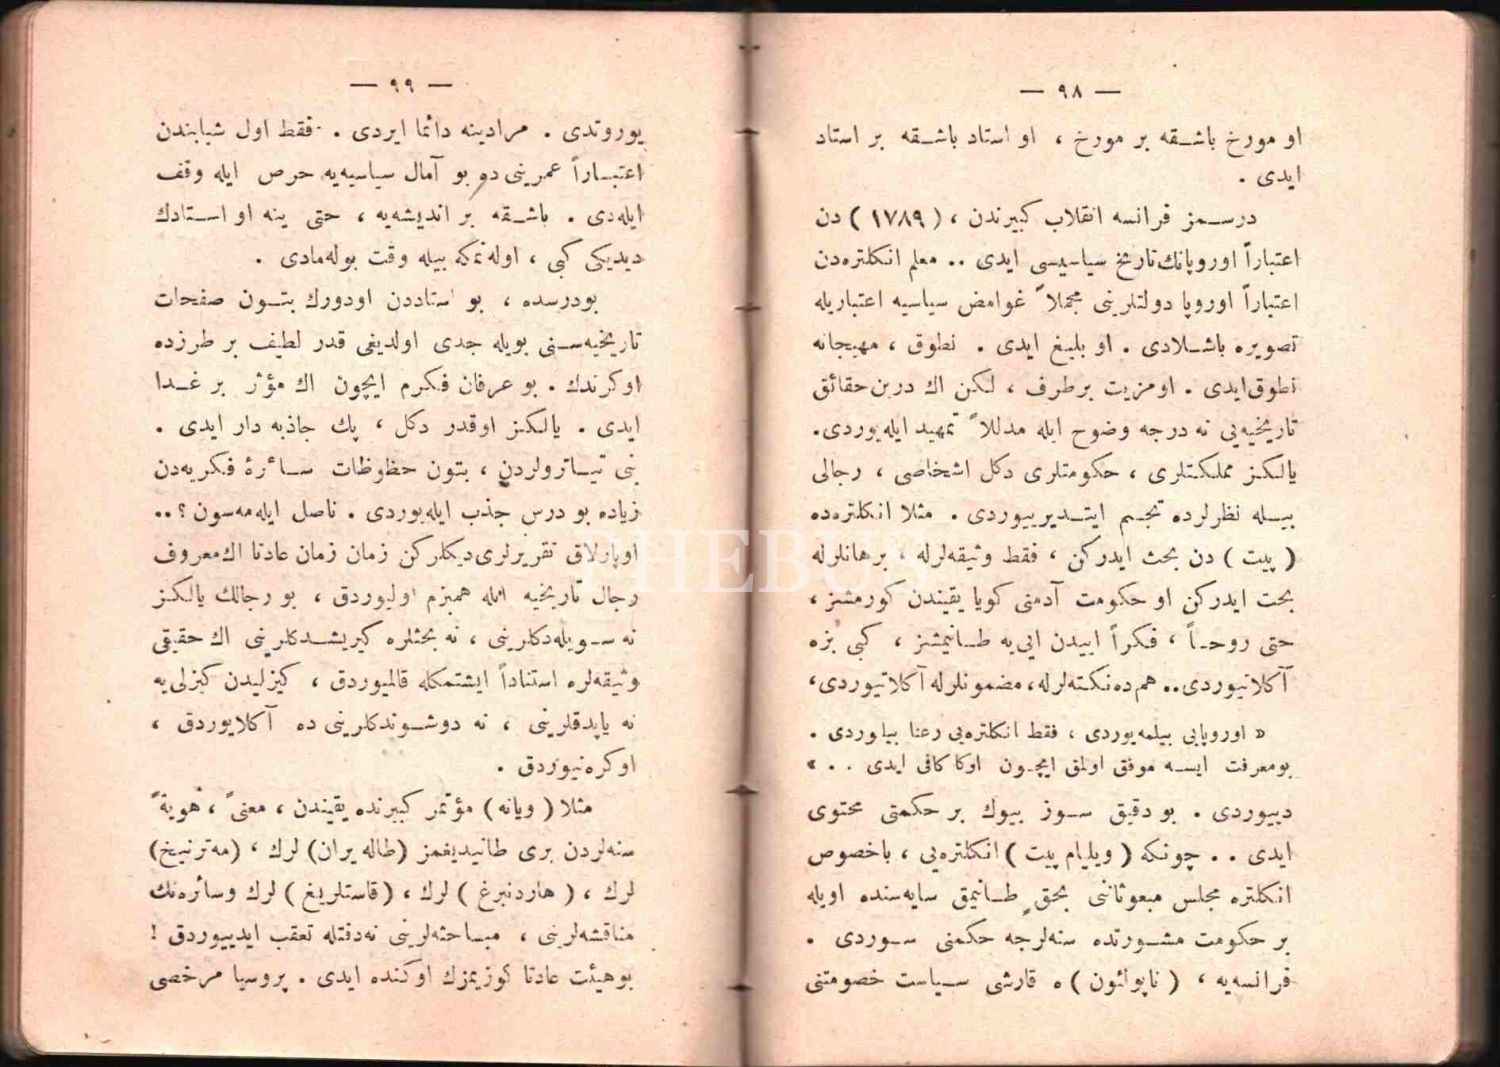 — ٩٨ —
او مورخ باشقه بر مورخ ، او استاد باشقه بر استاد
ایدی .
درسمز فرانسه انقلاب كبیرندن ، ( ١٧٨٩ ) دن
اعتباراً اوروپانك تاریخ سیاسیسی ایدی .. معلم انكلتره‌دن
اعتباراً اوروپا دولتلرینی مجملاً غوامض سیاسیه اعتباریله
تصویره باشلادی . او بلیغ ایدی . نطوق ، مهیجانه
نطوق ایدی . او مزیت برطرف ، لكن اك درین حقائق
تاریخیه‌یی نه درجه وضوح ایله مدللاً تمهید ایله‌یوردی.
یالكز مملكتلری ، حكومتلری دكل اشخاصی ، رجالی
بیله نظرلرده تجسم ایتدیرییوردی . مثلا انكلتره‌ده
( پیت ) دن بحث ایدركن ، فقط وثیقه‌لرله ، برهانلرله
بحث ایدركن او حكومت آدمنی كویا یقیندن كورمشز ،
حتی روحاً ، فكراً اییدن ایی‌یه طانیمشز ، كبی بزه
آكلاتیوردی.. هم‌ده نكته‌لرله، مضمونلرله آكلاتیوردی،
« اوروپایی بیلمه‌یوردی ، فقط انكلتره‌یی رعنا بیلیوردی .
بو معرفت ایسه موفق اولمق ایچون اوكا كافی ایدی . . »
دییوردی . بو دقیق سوز بیوك بر حكمتی محتوی
ایدی . . چونكه ( ویلیام پیت ) انكلتره‌یی ، باخصوص
انكلتره مجلس مبعوثاننی بحق طانیمق سایه‌سنده اویله
بر حكومت مشورتده سنه‌لرجه حكمنی سوردی .
فرانسه‌یه ، ( ناپولئون ) ه قارشی سیاست خصومتنی
— ٩٩ —
یوروتدی . مرادینه دائما ایردی . فقط اول شبابندن
اعتباراً عمرینی ده بو آمال سیاسیه‌یه حرص ایله وقف
ایله‌دی . باشقه بر اندیشه‌یه ، حتی ینه او استادك
دیدیكی كبی ، اوله‌نمكه بیله وقت بوله‌مادی .
بودرسده ، بو استاددن اودورك بتون صفحات
تاریخیه‌سنی بویله جدی اولدیغی قدر لطیف بر طرزده
اوكرندك . بو عرفان فكرم ایچون اك مؤثر بر غدا
ایدی . یالكز اوقدر دكل ، پك جاذبه دار ایدی .
بنی تیاترولردن ، بتون حظوظات سائرۀ فكریه‌دن
زیاده بو درس جذب ایله‌یوردی . ناصل ایله‌مه‌سون ؟ ..
او پارلاق تقریرلری دیكلركن زمان زمان عادتا اك معروف
رجال تاریخیه ایله همبزم اولیوردق ، بو رجالك یالكز
نه سویله‌دكلرینی ، نه بحثلره كیریشدكلرینی اك حقیقی
وثیقه‌لره استناداً ایشتمكله قالمیوردق ، كیزلیدن كیزلی‌یه
نه یاپدقلرینی ، نه دوشوندكلرینی ده آكلایوردق ،
اوكره‌نیوردق .
مثلا ( ویانه ) مؤتمر كبیرنده یقیندن ، معنیً ، هویةً
سنه‌لردن بری طانیدیغمز (طاله‌یران) لرك ، (مه‌ترنیخ)
لرك ، ( هاردنبرغ ) لرك ، ( قاستلریغ ) لرك وسائره‌نك
مناقشه‌لرینی ، مباحثه‌لرینی نه‌دقتله تعقب ایدییوردق !
بوهیئت عادتا كوزیمزك اوكنده ایدی . پروسیا مرخصی
THEBUS